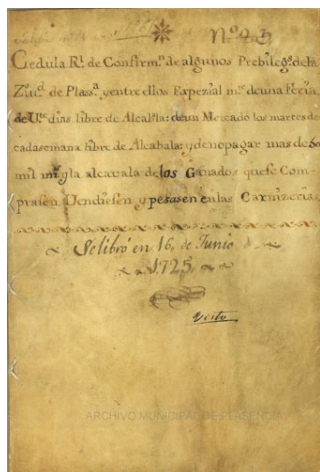 Nº 23
Cedula Rl. de Confirmn. de algunos Prebilegs. de la
Ziud. de Plasa. y entre ellos Expezial mte. de una Feria,
de Us. dias libre de Alcabla: de un Mercado los martes de
cada semana libre de Alcabala: y de no pagar mas de 80
mil ms. y la alcavala de los Ganados que se Com-
prasen Vendiesen y pesasen en las Carnizerias,
Se libró en 16, de Junio de
1725,
Visto
ARCHIVO MUNICIPAL DE PLASENCIA